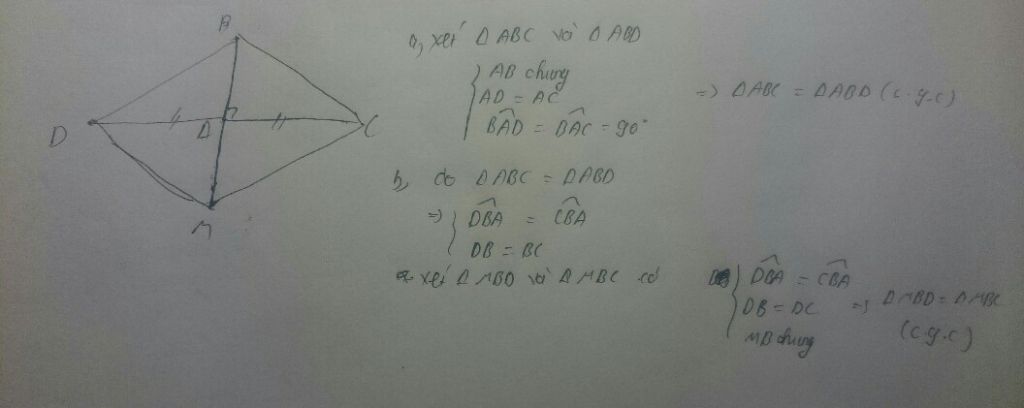 B
D
A
C
M
a, xét ΔABC và ΔABD
AB chung
AD = AC
BAD = BAC = 90°
=> ΔABC = ΔABD (c.g.c)
b, do ΔABC = ΔABD
=> DBA = CBA
DB = BC
xét ΔMBD và ΔMBC có
DBA = CBA
DB = DC => ΔMBD = ΔMBC
MB chung (c.g.c)